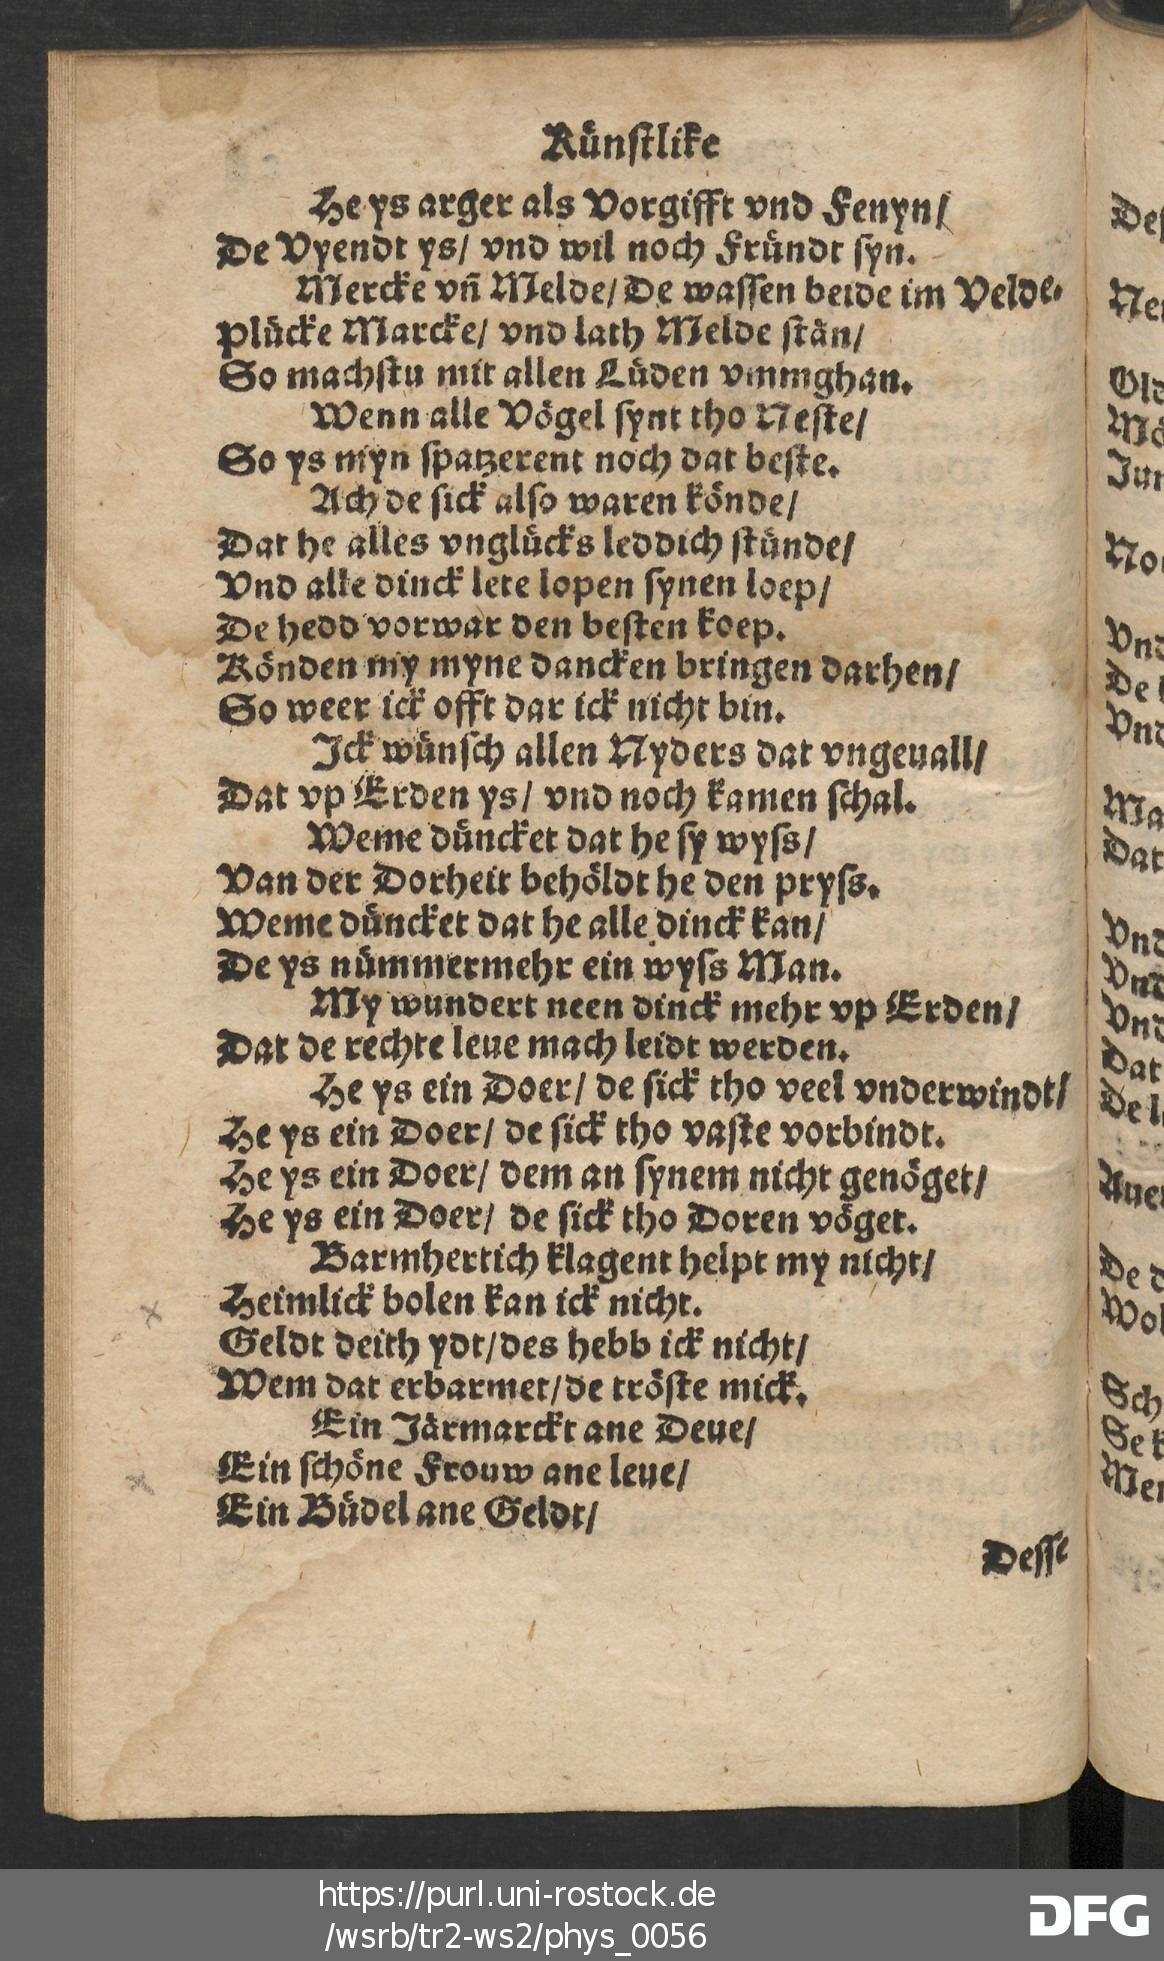 Künstlike
He ys arger als Vorgifft vnd Fenyn/
De Vyendt ys/ vnd wil noch Fründt syn.
Mercke vn̄ Melde/ De wassen beide im Velde.
Plücke Marcke/ vnd lath Melde stån/
So machstu mit allen Lüden vmmghan.
Wenn alle Vögel synt tho Neste/
So ys myn spatzerent noch dat beste.
Ach de sick also waren könde/
Dat he alles vnglücks leddich stünde/
Vnd alle dinck lete lopen synen loep/
De hedd vorwar den besten koep.
Könden my myne dancken bringen darhen/
So weer ick offt dar ick nicht bin.
Ick wünsch allen Nyders dat vngeuall/
Dat vp Erden ys/ vnd noch kamen schal.
Weme düncket dat he sy wyss/
Van der Dorheit behöldt he den pryss.
Weme düncket dat he alle dinck kan/
De ys nümmermehr ein wyss Man.
My wundert neen dinck mehr vp Erden/
Dat de rechte leue mach leidt werden.
He ys ein Doer/ de sick tho veel vnderwindt/
He ys ein Doer/ de sick tho vaste vorbindt.
He ys ein Doer/ dem an synem nicht genöget/
He ys ein Doer/ de sick tho Doren vöget.
Barmhertich klagent helpt my nicht/
Heimlick bolen kan ick nicht.
Geldt deith ydt/ des hebb ick nicht/
Wem dat erbarmet/ de tröste mick.
Ein Järmarckt ane Deue/
Ein schöne Frouw ane leue/
Ein Büdel ane Geldt/
Desse
Des
Nei
Old
Mö
Jun
No
Vnd
De
Vnd
Ma
Dat
Vnd
Vnd
Vnd
Dat
De l
Auer
De d
Wol
Sch
Se k
Men
https://purl.uni-rostock.de
/wsrb/tr2-ws2/phys_0056
DFG